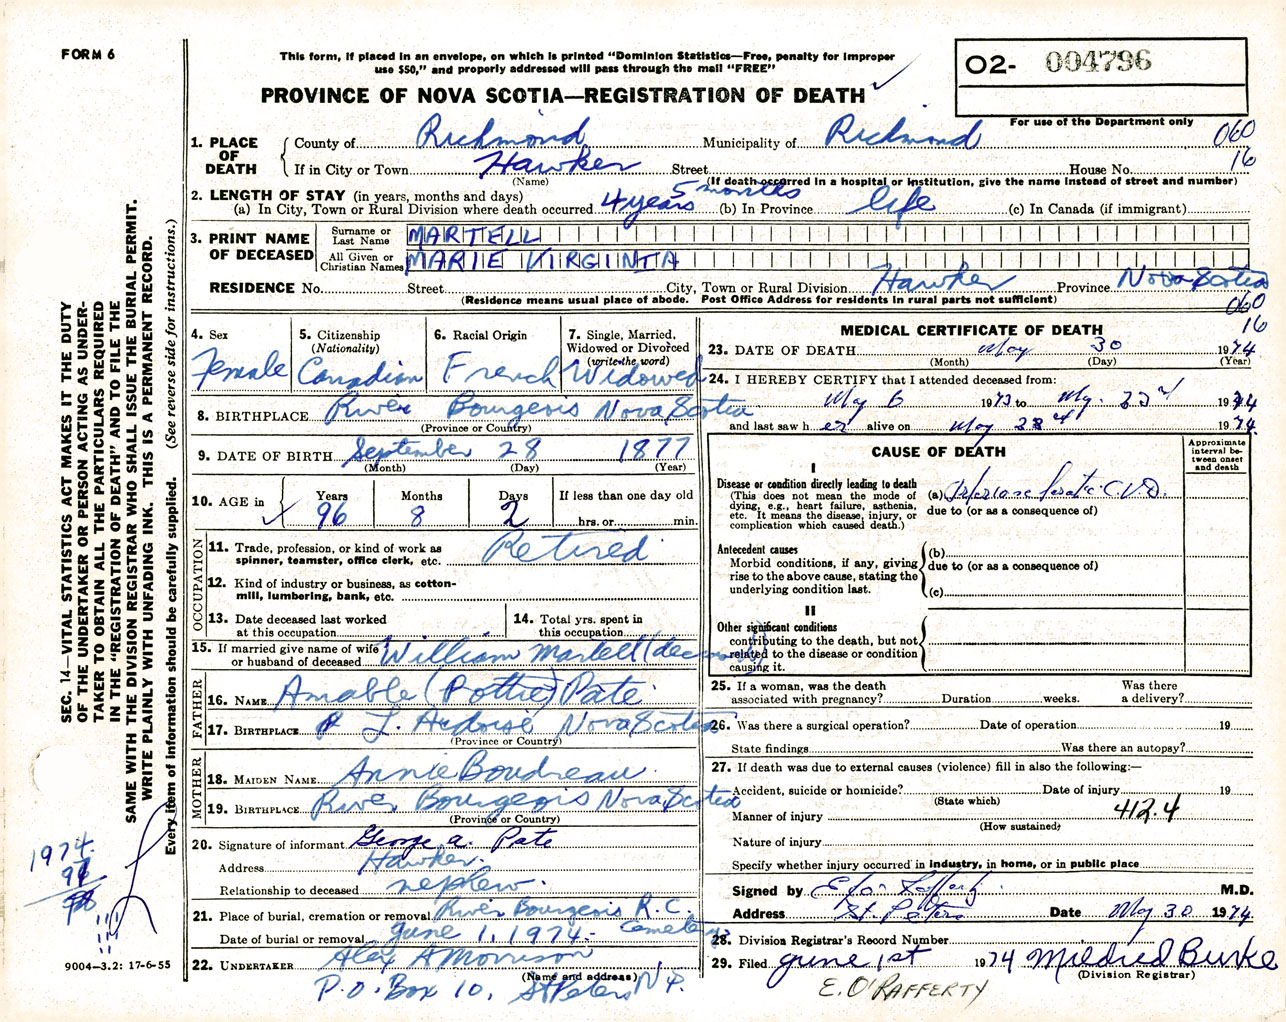 FORM 6
This form, if placed in an envelope, on which is printed "Dominion Statistics—Free, penalty for improper
use $50," and properly addressed will pass through the mail "FREE"
O2- 004796
PROVINCE OF NOVA SCOTIA—REGISTRATION OF DEATH
For use of the Department only
060
16
1. PLACE OF DEATH
County of Richmond Municipality of Richmond
If in City or Town Hawker Street House No.
(Name) (If death occurred in a hospital or institution, give the name instead of street and number)
2. LENGTH OF STAY (in years, months and days)
(a) In City, Town or Rural Division where death occurred 4 years 5 months (b) In Province life (c) In Canada (if immigrant)
3. PRINT NAME OF DECEASED
Surname or Last Name MARTELL
All Given or Christian Names MARIE VIRGIINTA
RESIDENCE No. Street City, Town or Rural Division Hawker Province Nova Scotia
(Residence means usual place of abode. Post Office Address for residents in rural parts not sufficient)
060
16
4. Sex Female
5. Citizenship (Nationality) Canadian
6. Racial Origin French
7. Single, Married, Widowed or Divorced (write the word) Widowed
8. BIRTHPLACE River Bourgeois Nova Scotia
(Province or Country)
9. DATE OF BIRTH September 28 1877
(Month) (Day) (Year)
10. AGE in Years 96 Months 8 Days 2 If less than one day old hrs. or min.
OCCUPATION
11. Trade, profession, or kind of work as spinner, teamster, office clerk, etc. Retired
12. Kind of industry or business, as cotton-mill, lumbering, bank, etc.
13. Date deceased last worked at this occupation
14. Total yrs. spent in this occupation
15. If married give name of wife or husband of deceased William Martell (deceased)
FATHER
16. NAME Amable (Pottie) Pate
17. BIRTHPLACE L. Ardoise Nova Scotia
(Province or Country)
MOTHER
18. MAIDEN NAME Annie Boudreau
19. BIRTHPLACE River Bourgeois Nova Scotia
(Province or Country)
20. Signature of informant George A. Pate
Address Hawker
Relationship to deceased nephew.
21. Place of burial, cremation or removal River Bourgeois R.C. Cemetery
Date of burial or removal June 1, 1974
22. UNDERTAKER Alex A Morrison
(Name and address)
P.O. Box 10, St Peters N.S.
MEDICAL CERTIFICATE OF DEATH
23. DATE OF DEATH May 30 1974
(Month) (Day) (Year)
24. I HEREBY CERTIFY that I attended deceased from:
May 6 1973 to May 1974
and last saw her alive on May 1974
CAUSE OF DEATH
Approximate interval between onset and death
I
Disease or condition directly leading to death
(This does not mean the mode of dying, e.g., heart failure, asthenia, etc. It means the disease, injury, or complication which caused death.)
(a) C.V.D.
due to (or as a consequence of)
Antecedent causes
Morbid conditions, if any, giving rise to the above cause, stating the underlying condition last.
(b)
due to (or as a consequence of)
(c)
II
Other significant conditions
contributing to the death, but not related to the disease or condition causing it.
25. If a woman, was the death associated with pregnancy? Duration weeks. Was there a delivery?
26. Was there a surgical operation? Date of operation 19
State findings Was there an autopsy?
27. If death was due to external causes (violence) fill in also the following:—
Accident, suicide or homicide? Date of injury 19
(State which)
Manner of injury 412.4
(How sustained)
Nature of injury
Specify whether injury occurred in industry, in home, or in public place
Signed by M.D.
Address St. Peters Date May 30 1974
28. Division Registrar's Record Number
29. Filed June 1st 1974 Mildred Burke
(Division Registrar)
E. O'RAFFERTY
SEC. 14—VITAL STATISTICS ACT MAKES IT THE DUTY
OF THE UNDERTAKER OR PERSON ACTING AS UNDER-
TAKER TO OBTAIN ALL THE PARTICULARS REQUIRED
IN THE "REGISTRATION OF DEATH" AND TO FILE THE
SAME WITH THE DIVISION REGISTRAR WHO SHALL ISSUE THE BURIAL PERMIT.
WRITE PLAINLY WITH UNFADING INK. THIS IS A PERMANENT RECORD.
Every item of information should be carefully supplied. (See reverse side for instructions.)
1974
9004—3.2: 17-6-55